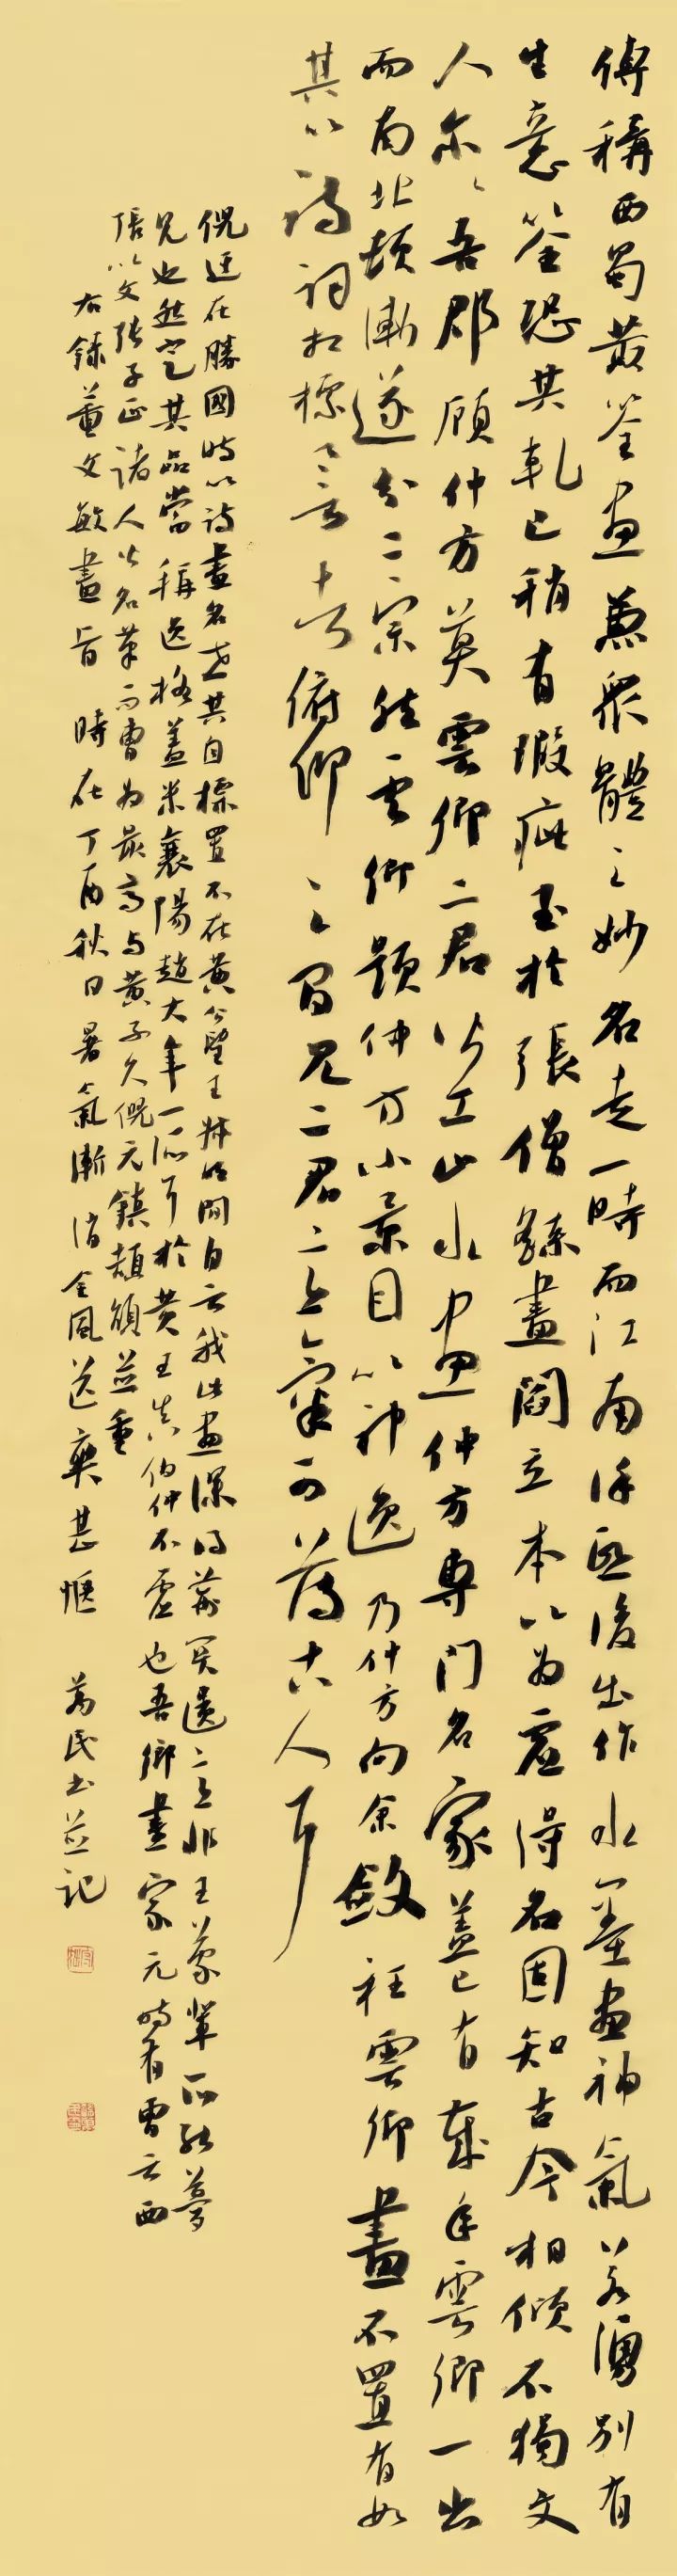 傳稱西蜀黃筌畫兼眾體之妙名走一時而江南徐熙後出作水墨畫神氣若湧別有
生意筌恐其軋已稍有瑕疵至於張僧繇畫閻立本以為虛得名固知古今相傾不獨文
人爾爾吾郡顧仲方莫雲卿二君皆工山水中畫仲方專門名家蓋已有歲年雲卿一出
而南北頓漸遂分二宗然雲卿題仲方小景目以神逸乃仲方向余斂衽雲卿畫不置有如
其以詩詞相標譽者俯仰之間見二君二意氣可薄古人耳
倪迂在勝國時以詩畫名世其自標置不在黃公望王叔明間自云我此畫深得荊關遺意非王蒙輩所能夢
見也然定其品當稱逸格蓋米襄陽趙大年一派耳於黃王真伯仲不虛也吾鄉畫家元時有曹云西
張以文張子正諸人皆名筆而曹為最高与黃子久倪元鎮頡頏並重
右錄董文敏畫旨 時在丁酉秋日暑氣漸消金風送爽甚愜 為民書並記